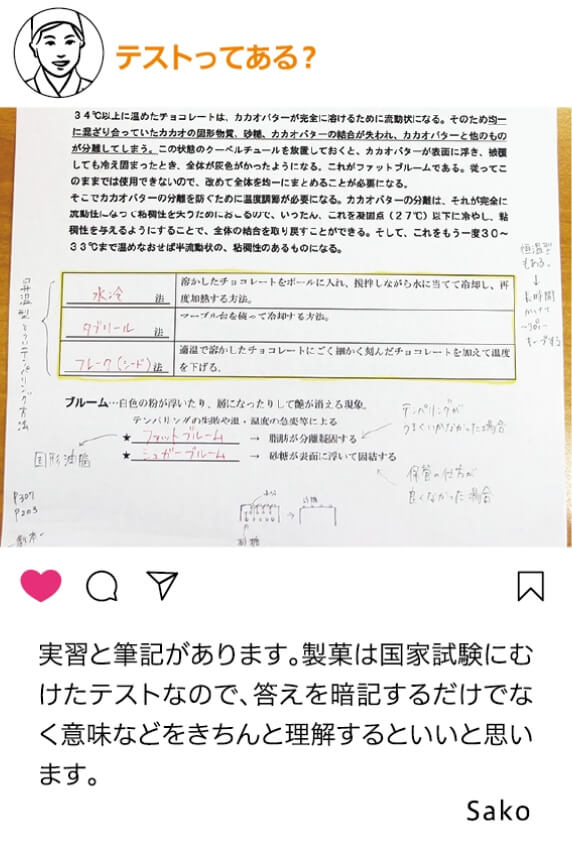 テストってある？
34℃以上に温めたチョコレートは、カカオバターが完全に溶けるために流動状になる。そのため均一
に混ざり合っていたカカオの固形物質、砂糖、カカオバターの結合が失われ、カカオバターと他のもの
が分離してしまう。この状態のクーベルチュールを放置しておくと、カカオバターが表面に浮き、被覆
しても冷え固まったとき、全体が灰色がかったようになる。これがファットブルームである。従ってこ
のままでは使用できないので、改めて全体を均一にまとめることが必要になる。
そこでカカオバターの分離を防ぐために温度調節が必要になる。カカオバターの分離は、それが完全に
流動性になって粘稠性を失うためにおこるので、いったん、これを凝固点（27℃）以下に冷やし、粘
稠性を与えるようにすることで、全体の結合を取り戻すことができる。そして、これをもう一度30～
33℃まで温めなおせば半流動状の、粘稠性のあるものになる。
恒温型
もある。
↓
長時間
かけて
キープする
昇温型というテンパリング方法
水冷 法
溶かしたチョコレートをボールに入れ、撹拌しながら水に当てて冷却し、再
度加熱する方法。
タブリール 法
マーブル台を使って冷却する方法。
フレーク(シード) 法
適温で溶かしたチョコレートにごく細かく刻んだチョコレートを加えて温度
を下げる。
ブルーム…白色の粉が浮いたり、層になったりして艶が消える現象。
テンパリングの失敗や湿・温度の急変等による
★ ファットブルーム → 脂肪が分離凝固する
★ シュガーブルーム → 砂糖が表面に浮いて固結する
テンパリングが
うまくいかなかった場合
固形油脂
保管の仕方が
良くなかった場合
P307
P203
水分
砂糖
砂糖
実習と筆記があります。製菓は国家試験にむ
けたテストなので、答えを暗記するだけでな
く意味などをきちんと理解するといいと思い
ます。
Sako